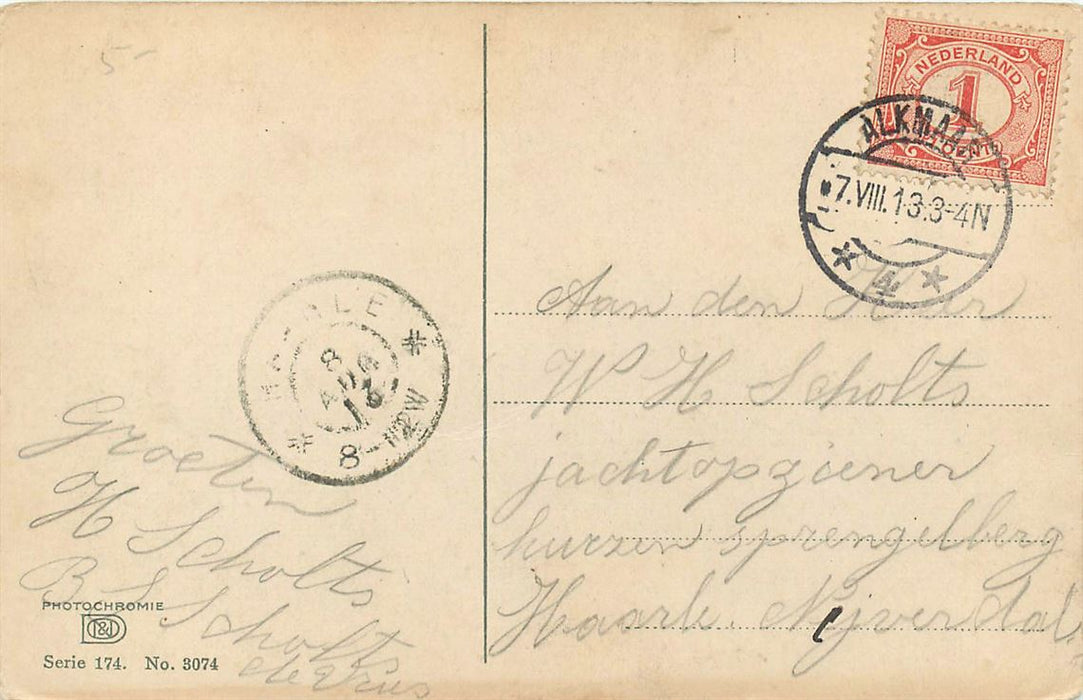 5
NEDERLAND
1
CENT
ALKMAAR
7.VIII.13.3-4N
4
HAARLE
8 AUG 13
8-12VM
Aan den Heer
W H Scholts
jachtopziener
huizen sprengelberg
Haarle. Nijverdal
Groeten
H Scholts
B S Scholts
de Vries
PHOTOCHROMIE
Serie 174. No. 3074